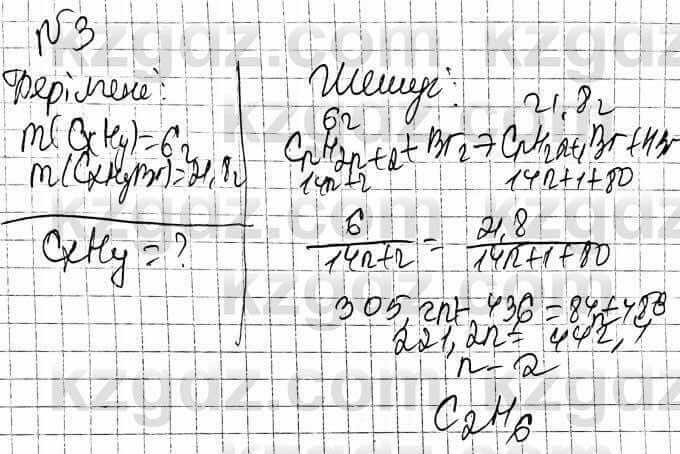 №3
Берілгені:
m(CxHy)=6г
m(CxHyBr)=21,8г
CxHy=?
Шешуі:
6г 21,8г
CnH2n+2+Br2→CnH2n+1Br+HBr
14n+2 14n+1+80
6/14n+2 = 21,8/14n+1+80
305,2n+43,6=84n+486
221,2n=442,4
n=2
C2H6
kzgdz.com